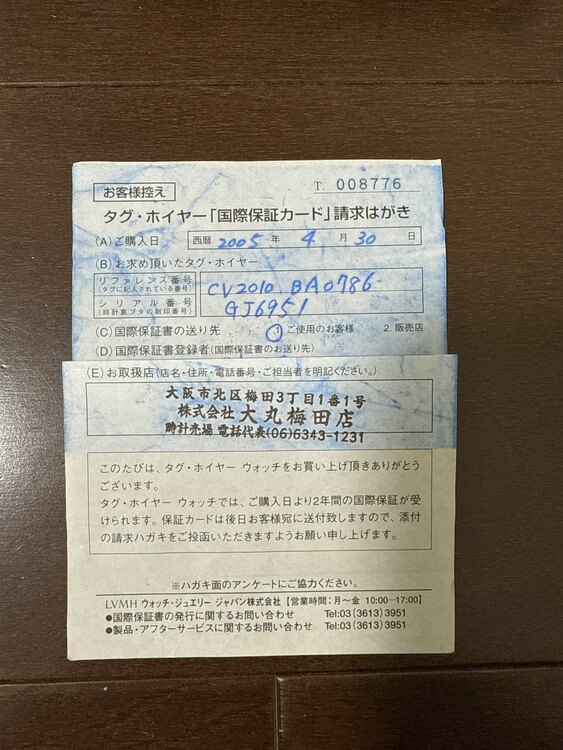 お客様控え
T. 008776
タグ・ホイヤー「国際保証カード」請求はがき
(A)ご購入日 西暦 2005 年 4 月 30 日
(B)お求め頂いたタグ・ホイヤー
リファレンス番号
(タグに記入されている番号)
CV2010. BA0786
シリアル番号
(時計裏ブタの刻印番号)
GJ6951
(C)国際保証書の送り先 1. ご使用のお客様 2. 販売店
(D)国際保証書登録者(国際保証書のお送り先)
(E)お取扱店(店名・住所・電話番号・ご担当者を明記ください。)
大阪市北区梅田3丁目1番1号
株式会社 大丸梅田店
時計売場 電話代表(06)6343-1231
このたびは、タグ・ホイヤー ウォッチをお買い上げ頂きありがとう
ございます。
タグ・ホイヤー ウォッチでは、ご購入日より2年間の国際保証が受
けられます。保証カードは後日お客様宛に送付致しますので、添付
の請求ハガキをご投函いただきますようお願い申し上げます。
※ハガキ面のアンケートにご協力ください。
LVMH ウォッチ・ジュエリー ジャパン株式会社【営業時間：月〜金 10:00−17:00】
●国際保証書の発行に関するお問い合わせ Tel:03(3613)3951
●製品・アフターサービスに関するお問い合わせ Tel:03(3613)3951